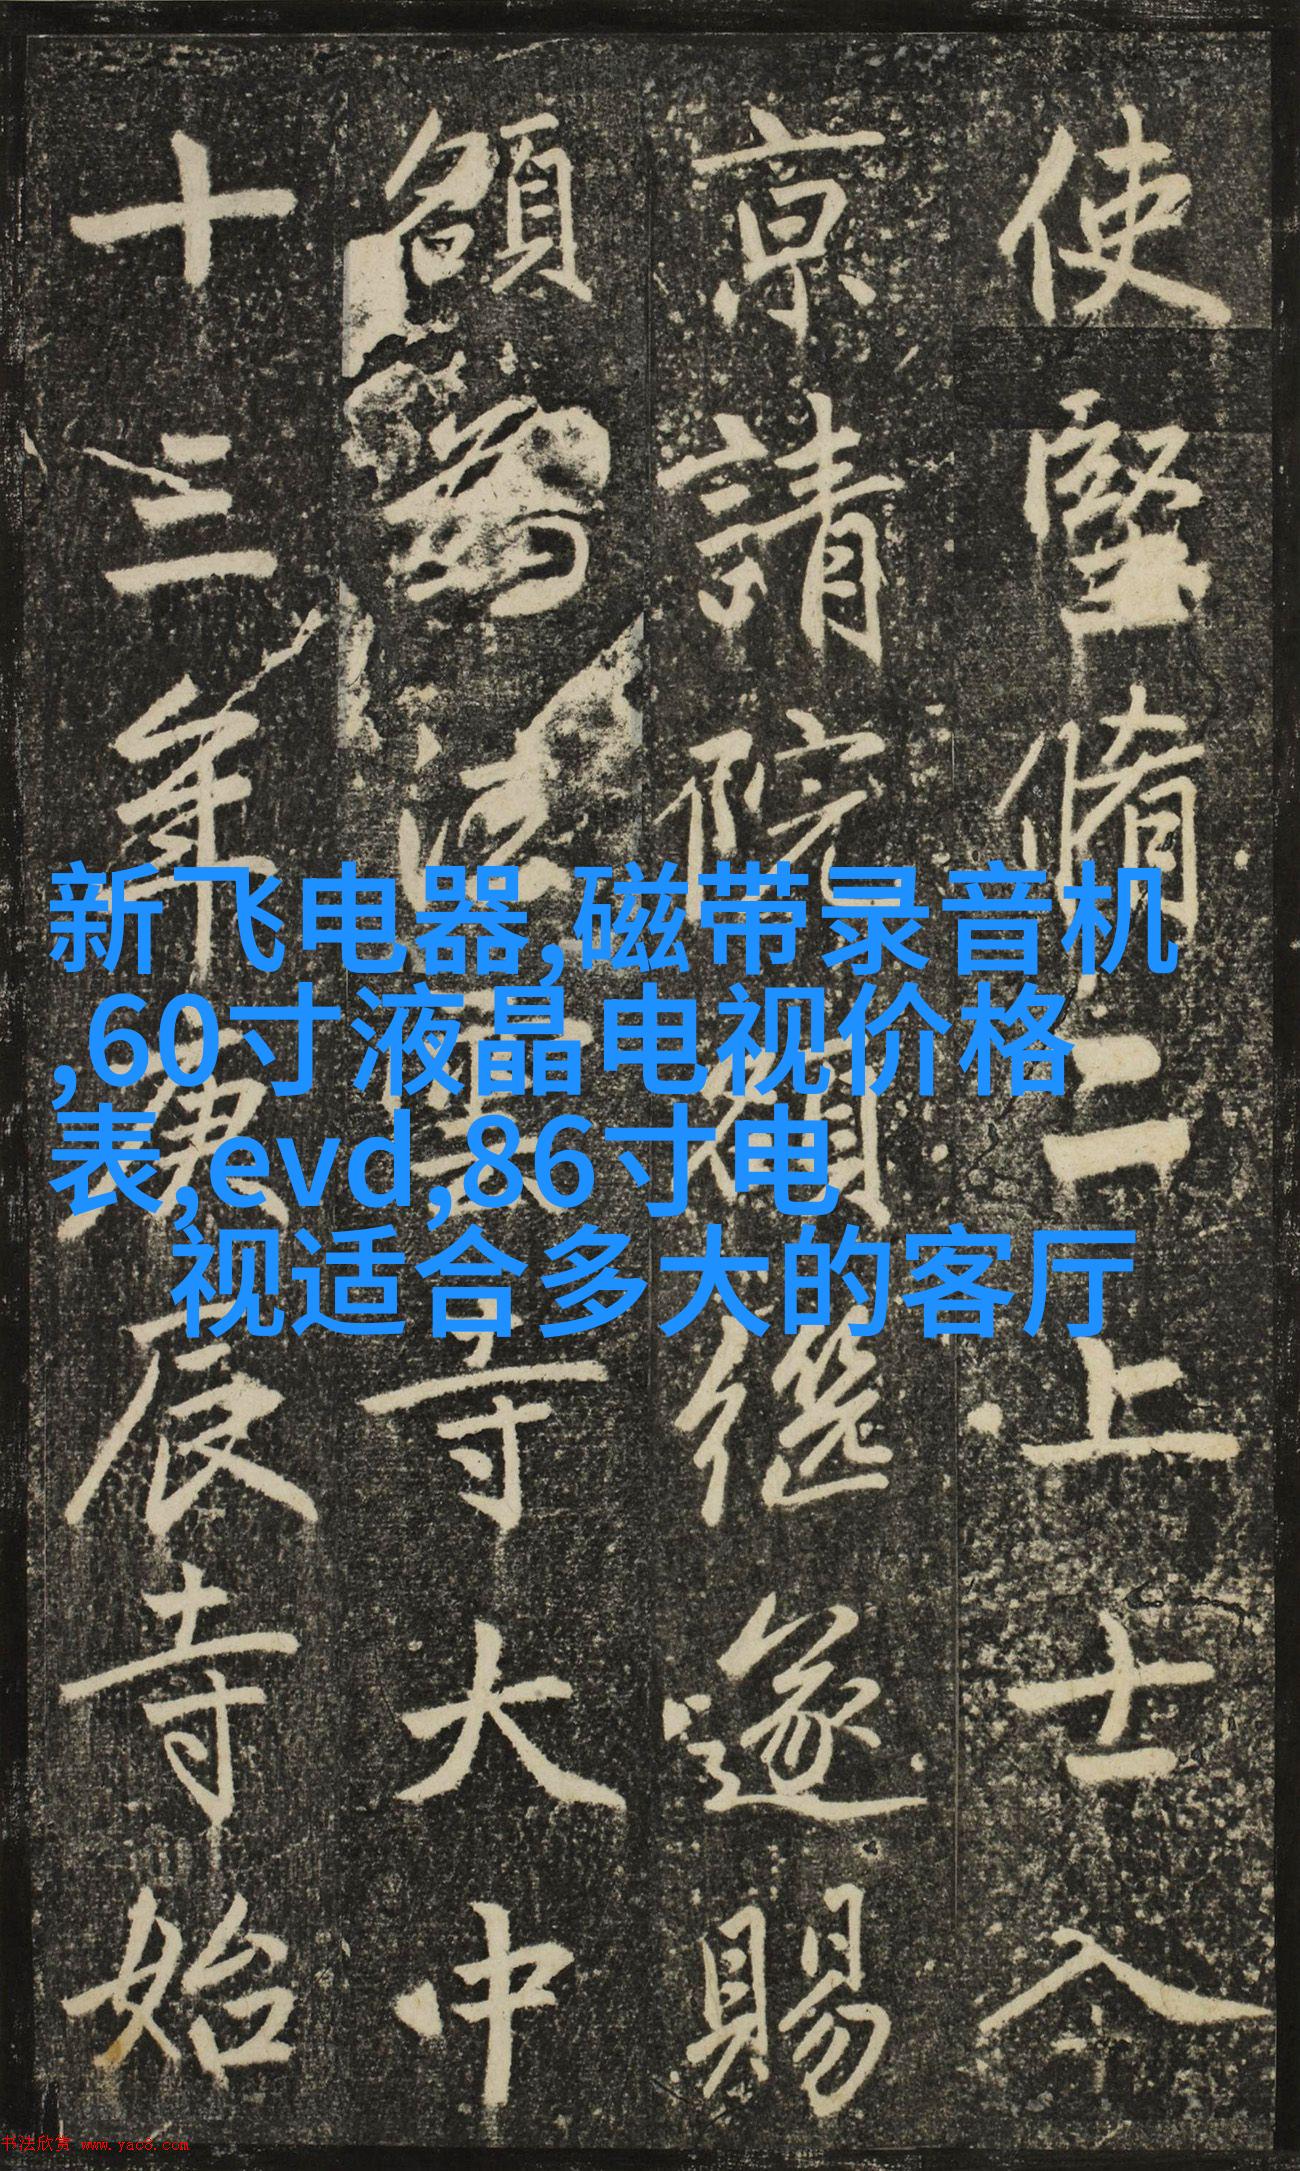 使堅脩二上士入
京請院額繼遂賜
額爲法雲寺大中
十三年庚辰寺始
新飞电器,磁带录音机
,60寸液晶电视价格
表,evd,86寸电
视适合多大的客厅
书法欣赏 www.yac8.com